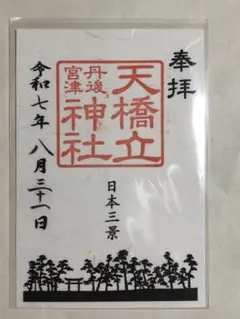 奉拝
天橋立
神社
丹後
宮津
日本三景
令和七年八月三十一日